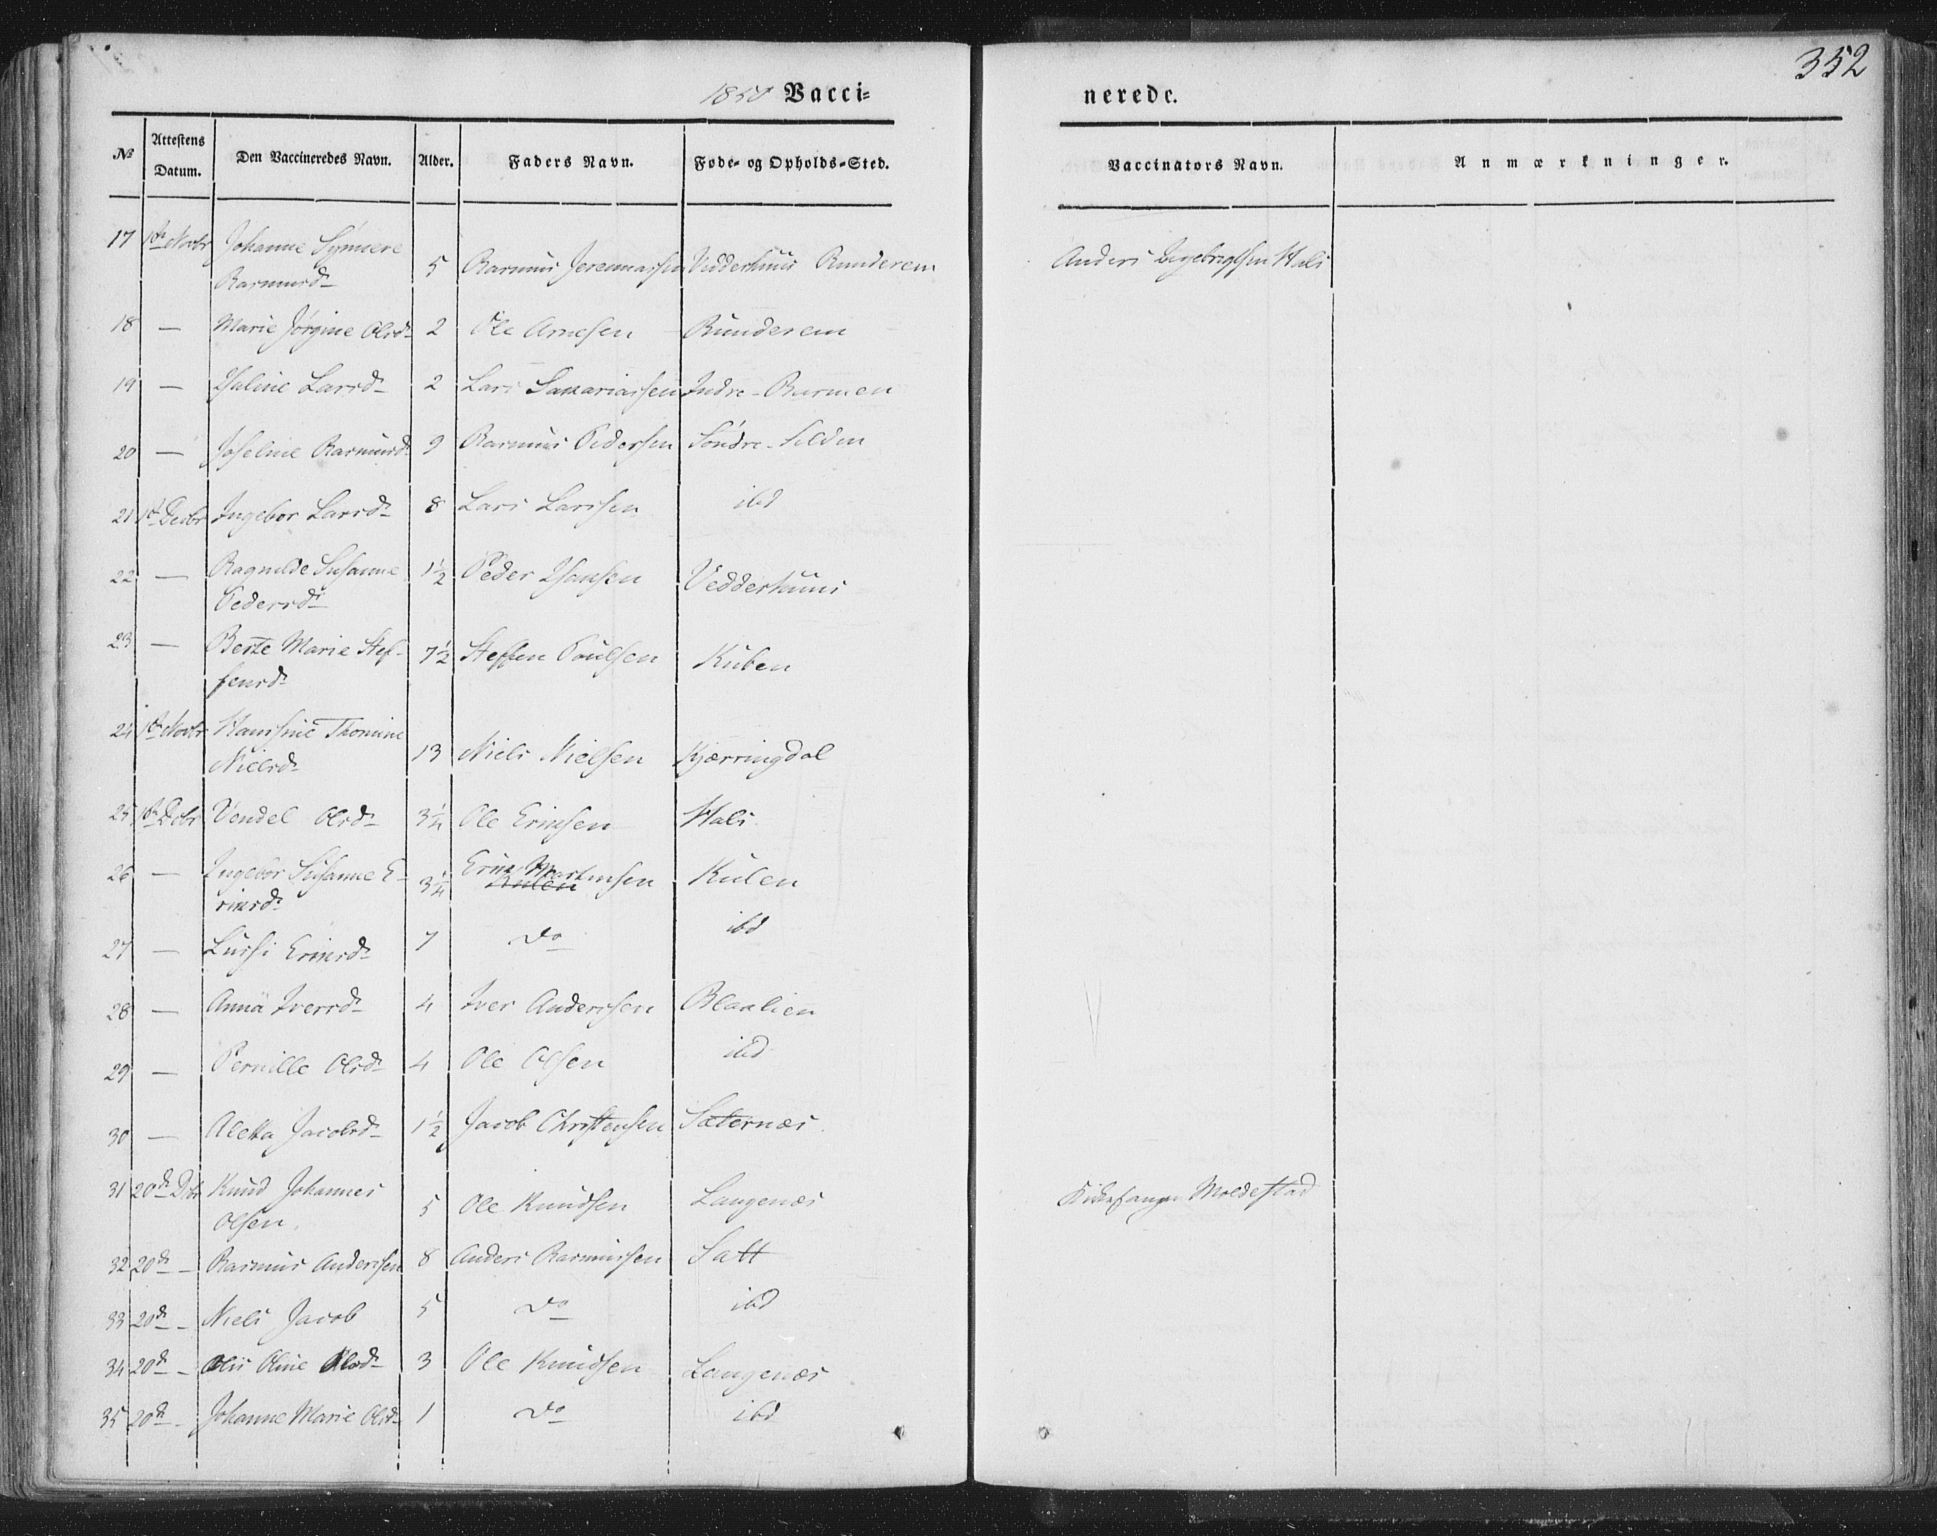 352
1850 Vacci-
nerede.
№ Attestens Datum. Den Vaccineredes Navn. Alder. Faders Navn. Føde- og Opholds-Sted. Vaccinators Navn. Anmærkninger.
17 1ste Novbr Johanne Synneve
Rasmusd. 5 Rasmus Jeremiassen Vedderhuus Runderem Anders Ingebrigtsen Hals
18 — Marie Jørgine Olsd. 2 Ole Arnesen Runderem
19 — Haline Larsd. 2 Lars Sakariassen Indre-Barmen
20 — Joseline Rasmusd. 9 Rasmus Pedersen Søndre-Selden
21 1ste Decbr Ingebor Larsd. 8 Lars Larssen ibd
22 — Ragnilde Susanne
Pedersd. 1½ Peder Hansen Vedderhuus
23 — Berte Marie Stef-
fensd. 7½ Steffen Poulsen Kuben
24 1ste Novbr Hanssine Thomine
Nielsd. 13 Niels Nielsen Kjærringdal
25 1ste Dcbr Vendel Olsd. 3¼ Ole Ericsen Hals
26 — Ingebor Susanne E-
ricsd. 3¼ Eric Martinsen Kulen
27 — Lussi Ericsd. 7 do ibd
28 — Anna Iversd. 4 Iver Anderssen Blaalien
29 — Pernille Olsd. 4 Ole Olsen ibd
30 — Aletta Jacobsd. 1½ Jacob Christensen Sæternæs
31 20de Dcbr Knud Johannes
Olsen. 5 Ole Knudsen Langenæs Kirkesanger Moldestad
32 20de — Rasmus Anderssen 8 Anders Rasmussen Satt
33 20de — Niels Jacob 5 do ibd
34 20de — Oline Olsd. 3 Ole Knudsen Langenæs
35 20de — Johanne Marie Olsd. 1 do ibd